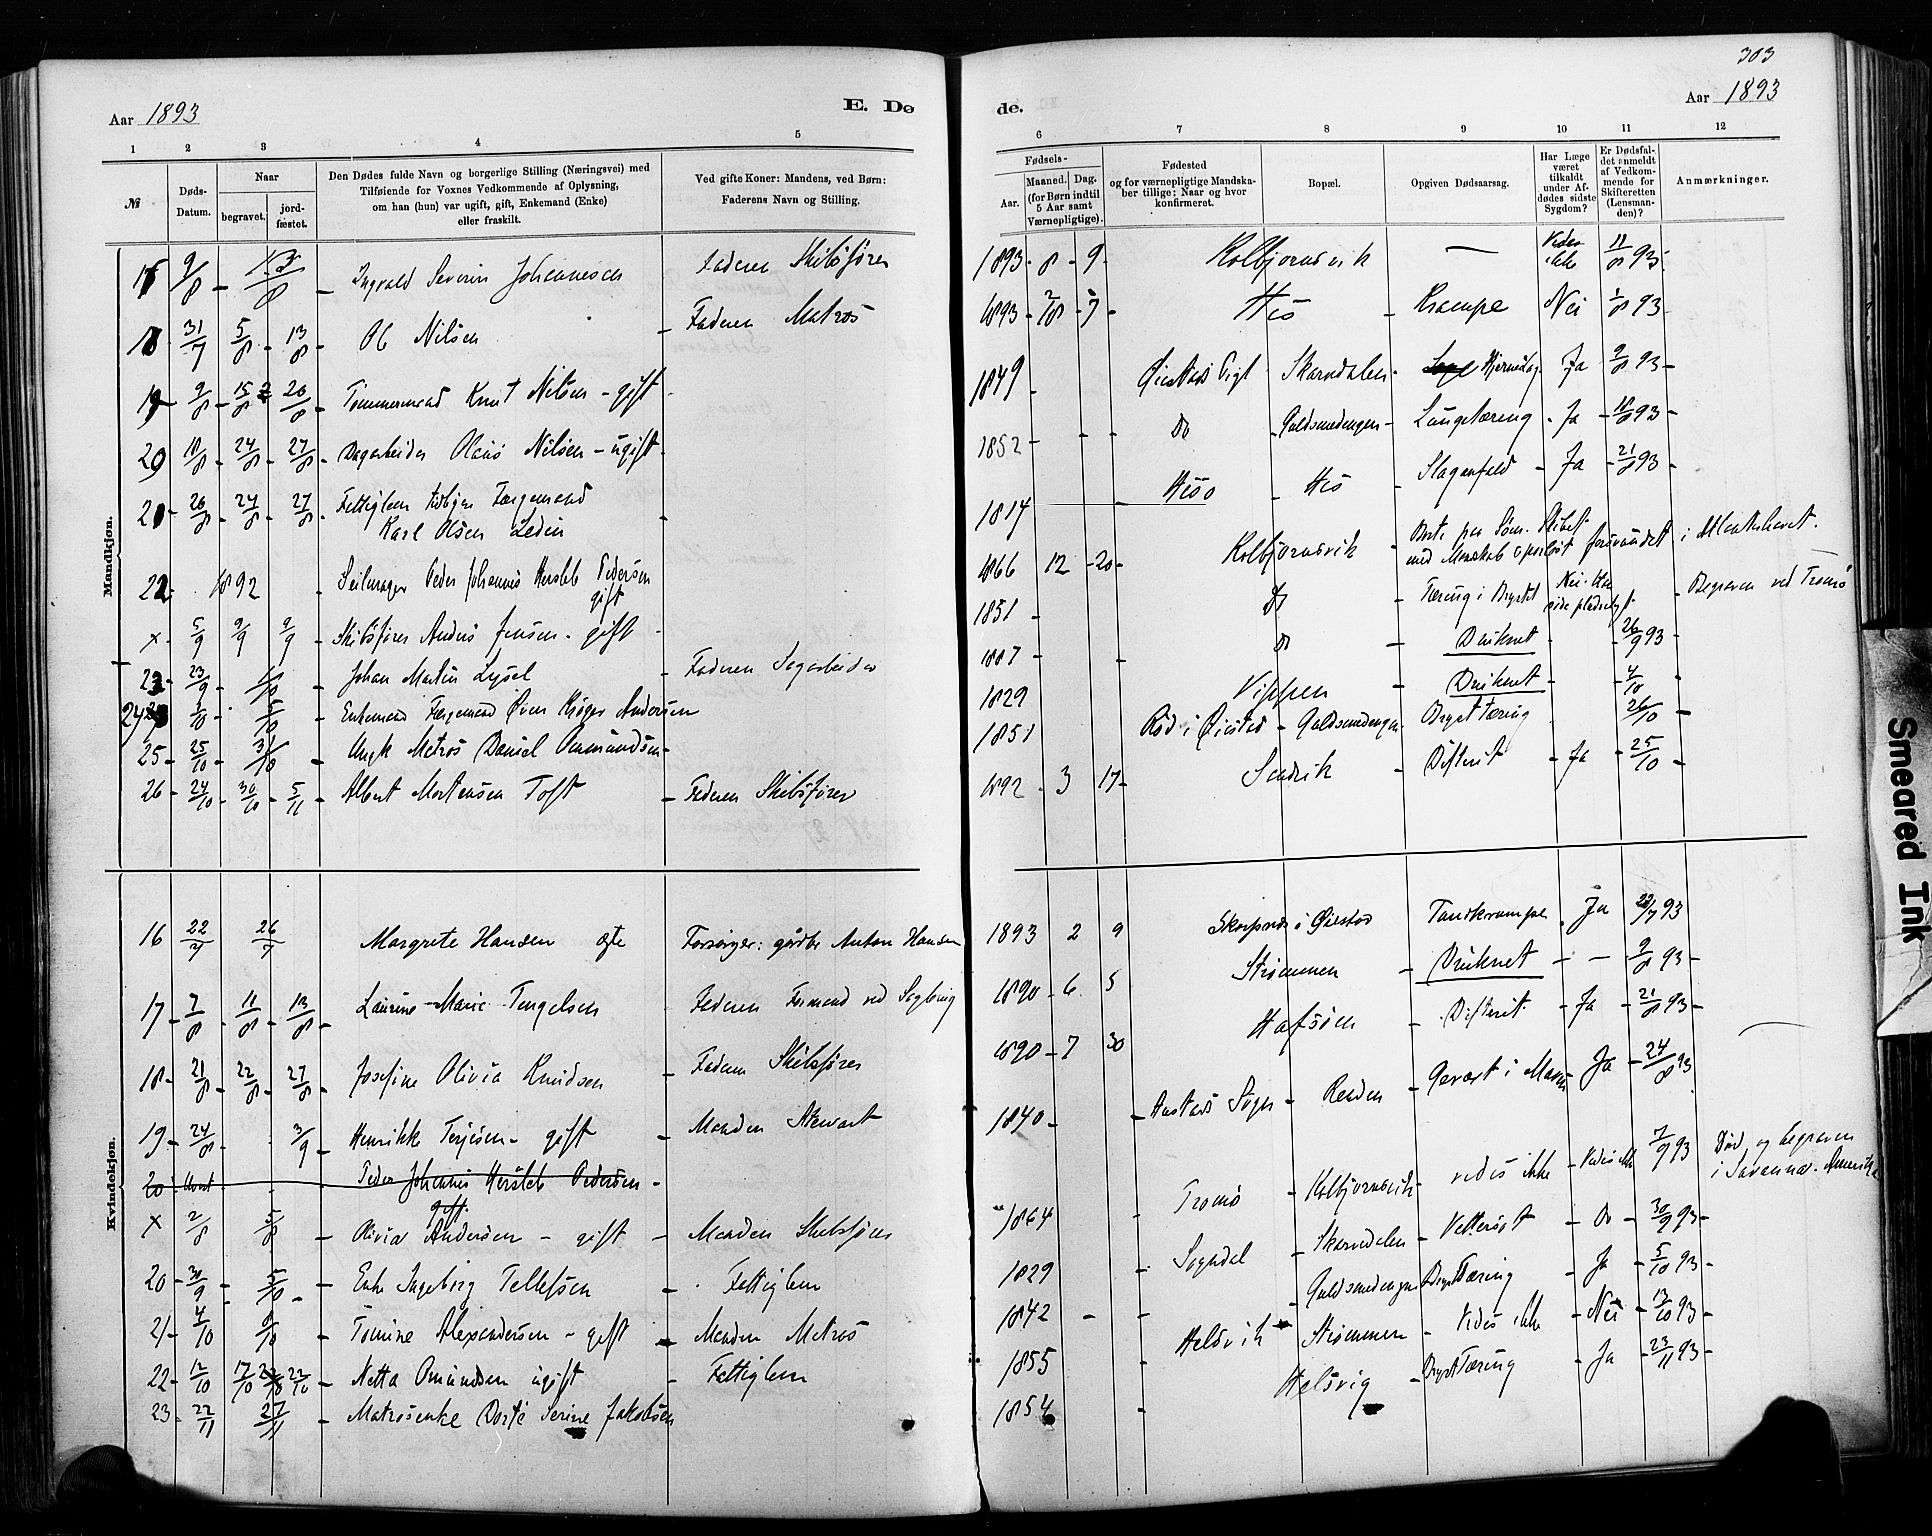 303
Aar 1893
E. Dø
de.
Aar 1893
1 2 3 4 5
6 7 8 9 10 11 12
№
Døds-
Datum.
Naar
begravet.
jord-
fæstet.
Den Dødes fulde Navn og borgerlige Stilling (Næringsvei) med
Tilføiende for Voxnes Vedkommende af Oplysning,
om han (hun) var ugift, gift, Enkemand (Enke)
eller fraskilt.
Ved gifte Koner: Mandens, ved Børn:
Faderens Navn og Stilling.
Fødsels-
Aar.
Maaned.
Dag.
(for Børn indtil
5 Aar samt
Værnepligtige).
Fødested
og for værnepligtige Mandska-
ber tillige: Naar og hvor
konfirmeret.
Bopæl.
Opgiven Dødsaarsag.
Har Læge
været
tilkaldt
under Af-
dødes sidste
Sygdom?
Er Dødsfal-
det anmeldt
af Vedkom-
mende for
Skifteretten
(Lensman-
den)?
Anmærkninger.
Mandkjøn.
9/8 Ingvald Severin Johannesen Faderen Skibsfører 1893 8 9 Kolbjornsvik — Vides ikke 11/8 93
18 31/7 5/8 13/8 Ol Nilsen Faderen Matros 1893 7 His Krampe Nei 93
19 9/8 15/8 20/8 Tømmermand Knut Nilsen - gift 1849 Øiestad Skarvdalen Ja 9/8 93
20 18/8 24/8 27/8 Dagarbeider Olaus Nilsen - ugift 1852 Do Guldsmedengen Lungetæring Ja 93
21 20/8 24/8 27/8 Fattiglem Færgemand
Karl Olsen Ledin 1814 Hisø His Slaganfald Ja 21/8 93
22 1892 Seilmager Peder Johannes Hersleb Pedersen
gift 1866 12 20 Kolbjornsvik Borte paa Skibet
med Mandskab sporløst forsvundet i Atlanterhavet.
x 5/9 9/9 9/9 Skibsfører Anders Jensen - gift 1851 Do Tæring i Brystet Nei Begraven ved Tromø
23 23/9 Johan Martin Lysel Faderen Sagarbeider 1887 Do Druknet 26/9 93
24 Enkemand Færgemand Øven Krøger Andersen 1829 Vippen Druknet 4/10
25 25/10 31/10 Ungk Matros Daniel Omundsen 1851 Rød i Øiestad Guldsmedengen Brysttæring 26/10
26 24/10 30/10 5/11 Albert Mortensen Toft Faderen Skibsfører 1892 3 17 Sandvik Difterit Ja 25/10
Kvindekjøn.
16 22/7 26/7 Margrete Hansen ægte Forsørger: gårdbr Anton Hansen 1893 2 9 i Øiestad Tandkrampe Ja 93
17 7/8 11/8 13/8 Laurine Marie Tengelsen Faderen Formand ved Sagbrug 1890 6 5 Strømmen Druknet — 9/8 93
18 21/8 22/8 27/8 Josefine Olivia Knudsen Faderen Skibsfører 1890 7 30 Hafsøen Difterit Ja 21/8 93
19 24/8 3/9 Henrikke Terjesen - gift Manden Stewart 1840 Austads Sogn Revden Ja 24/8 93
20 Peder Johannes Hersleb Pedersen
gift
x 2/8 5/8 Olivia Andersen - gift Manden Skibsfører 1864 Tromø Kolbjornsvik vides ikke Vides ikke 7/9 93 Død og begraven
i Savanna. Amerika
20 30/9 5/10 Enke Ingeborg Tellefsen Fattiglem 1829 Sogndal Skarvdalen Do 30/9 93
21 4/10 8/10 Tomine Alexandersen - gift Manden Matros 1842 Guldsmedengen Brysttæring Ja 5/10 93
22 12/10 17/10 22/10 Netta Omundsen ugift Fattiglem 1855 Helsvik Strømmen Vides ikke Nei 13/10 93
23 22/11 27/11 Matrosenke Dorte Serine Jakobsen 1854 Helsvig Brysttæring Ja 23/11 93
Smeared Ink